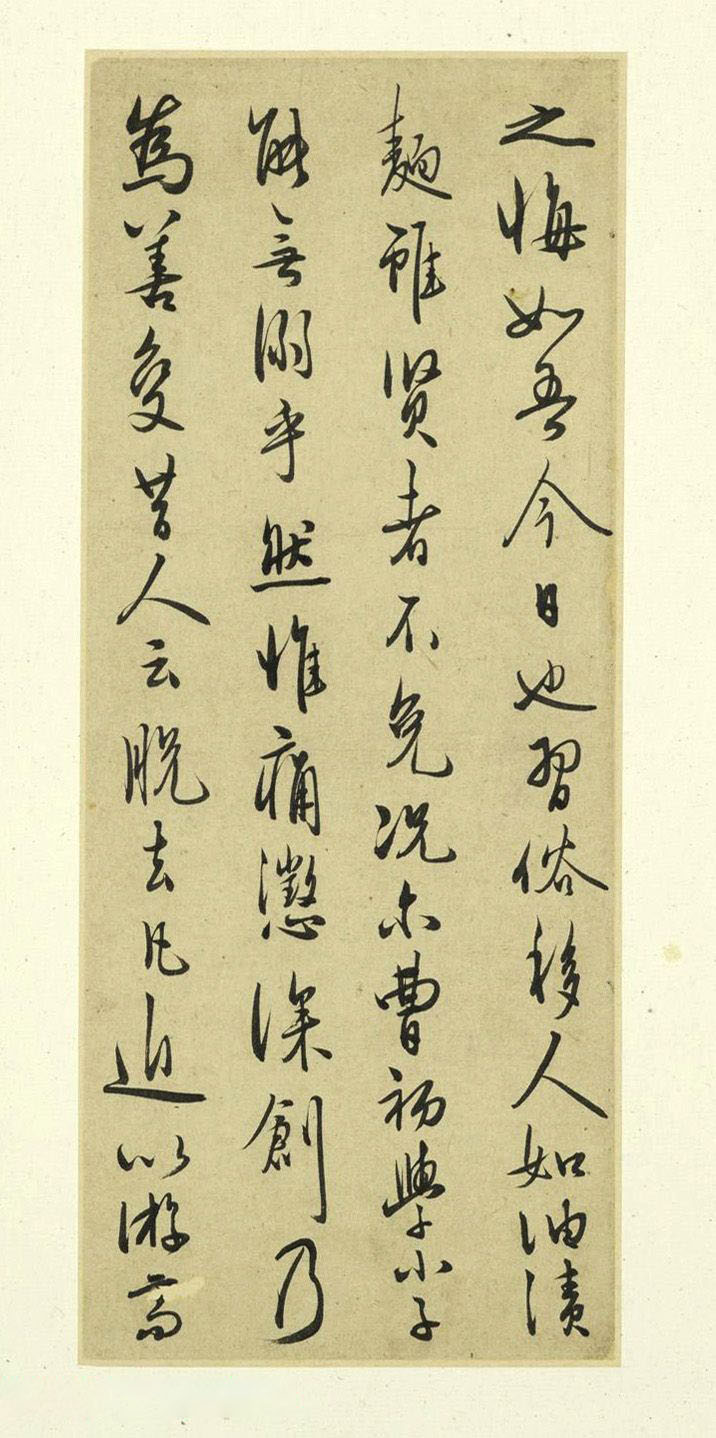 之悔如吾今日也習俗移人如油漬
麵雖賢者不免况尔曹初學小子
能無溺乎然惟痛懲深創乃
為善变昔人云脱去凡近以游高